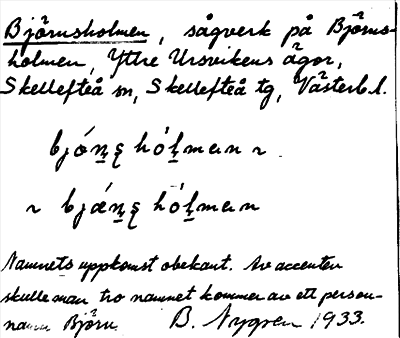 Björnsholmen, sågverk på Björns-
holmen, Yttre Ursvikens ägor,
Skellefteå sn, Skellefteå tg, Västerb. l.
bjó̀ṇȿ hó̀ḷman ~
~ bjǽṇȿ hó̀ḷman
Namnets uppkomst obekant. Av accenten
skulle man tro namnet kommer av ett person-
namn Björn. B. Nygren 1933.